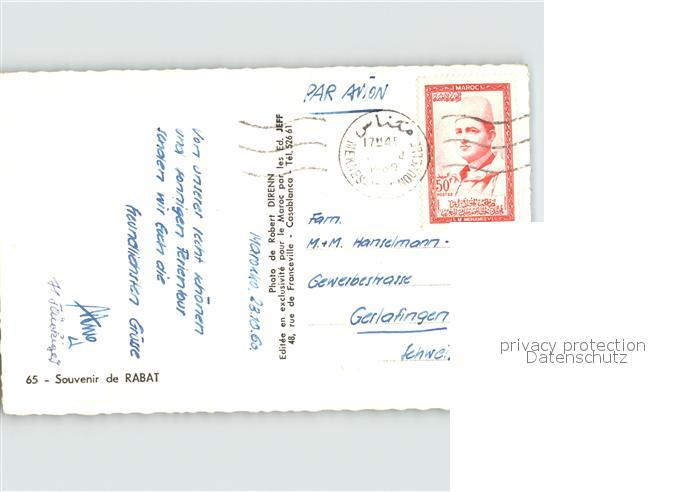 PAR AVION
MAROC
50F
POSTES
S.M. MOHAMED V
مكناس
17H45
MEKNES
NOUVELLE
Fam.
M.+M. Hanselmann-
Gewerbestrasse
Gerlafingen
Schwei
Marokko, 28.10.60
Von unserer recht schönen
und sonnigen Ferientour
senden wir Euch die
freundlichsten Grüsse
Photo de Robert DIRENN
Editée en exclusivité pour le Maroc par les Ed. JEFF
48, rue de Franceville - Casablanca - Tél. 526 61
65 - Souvenir de RABAT
privacy protection
Datenschutz